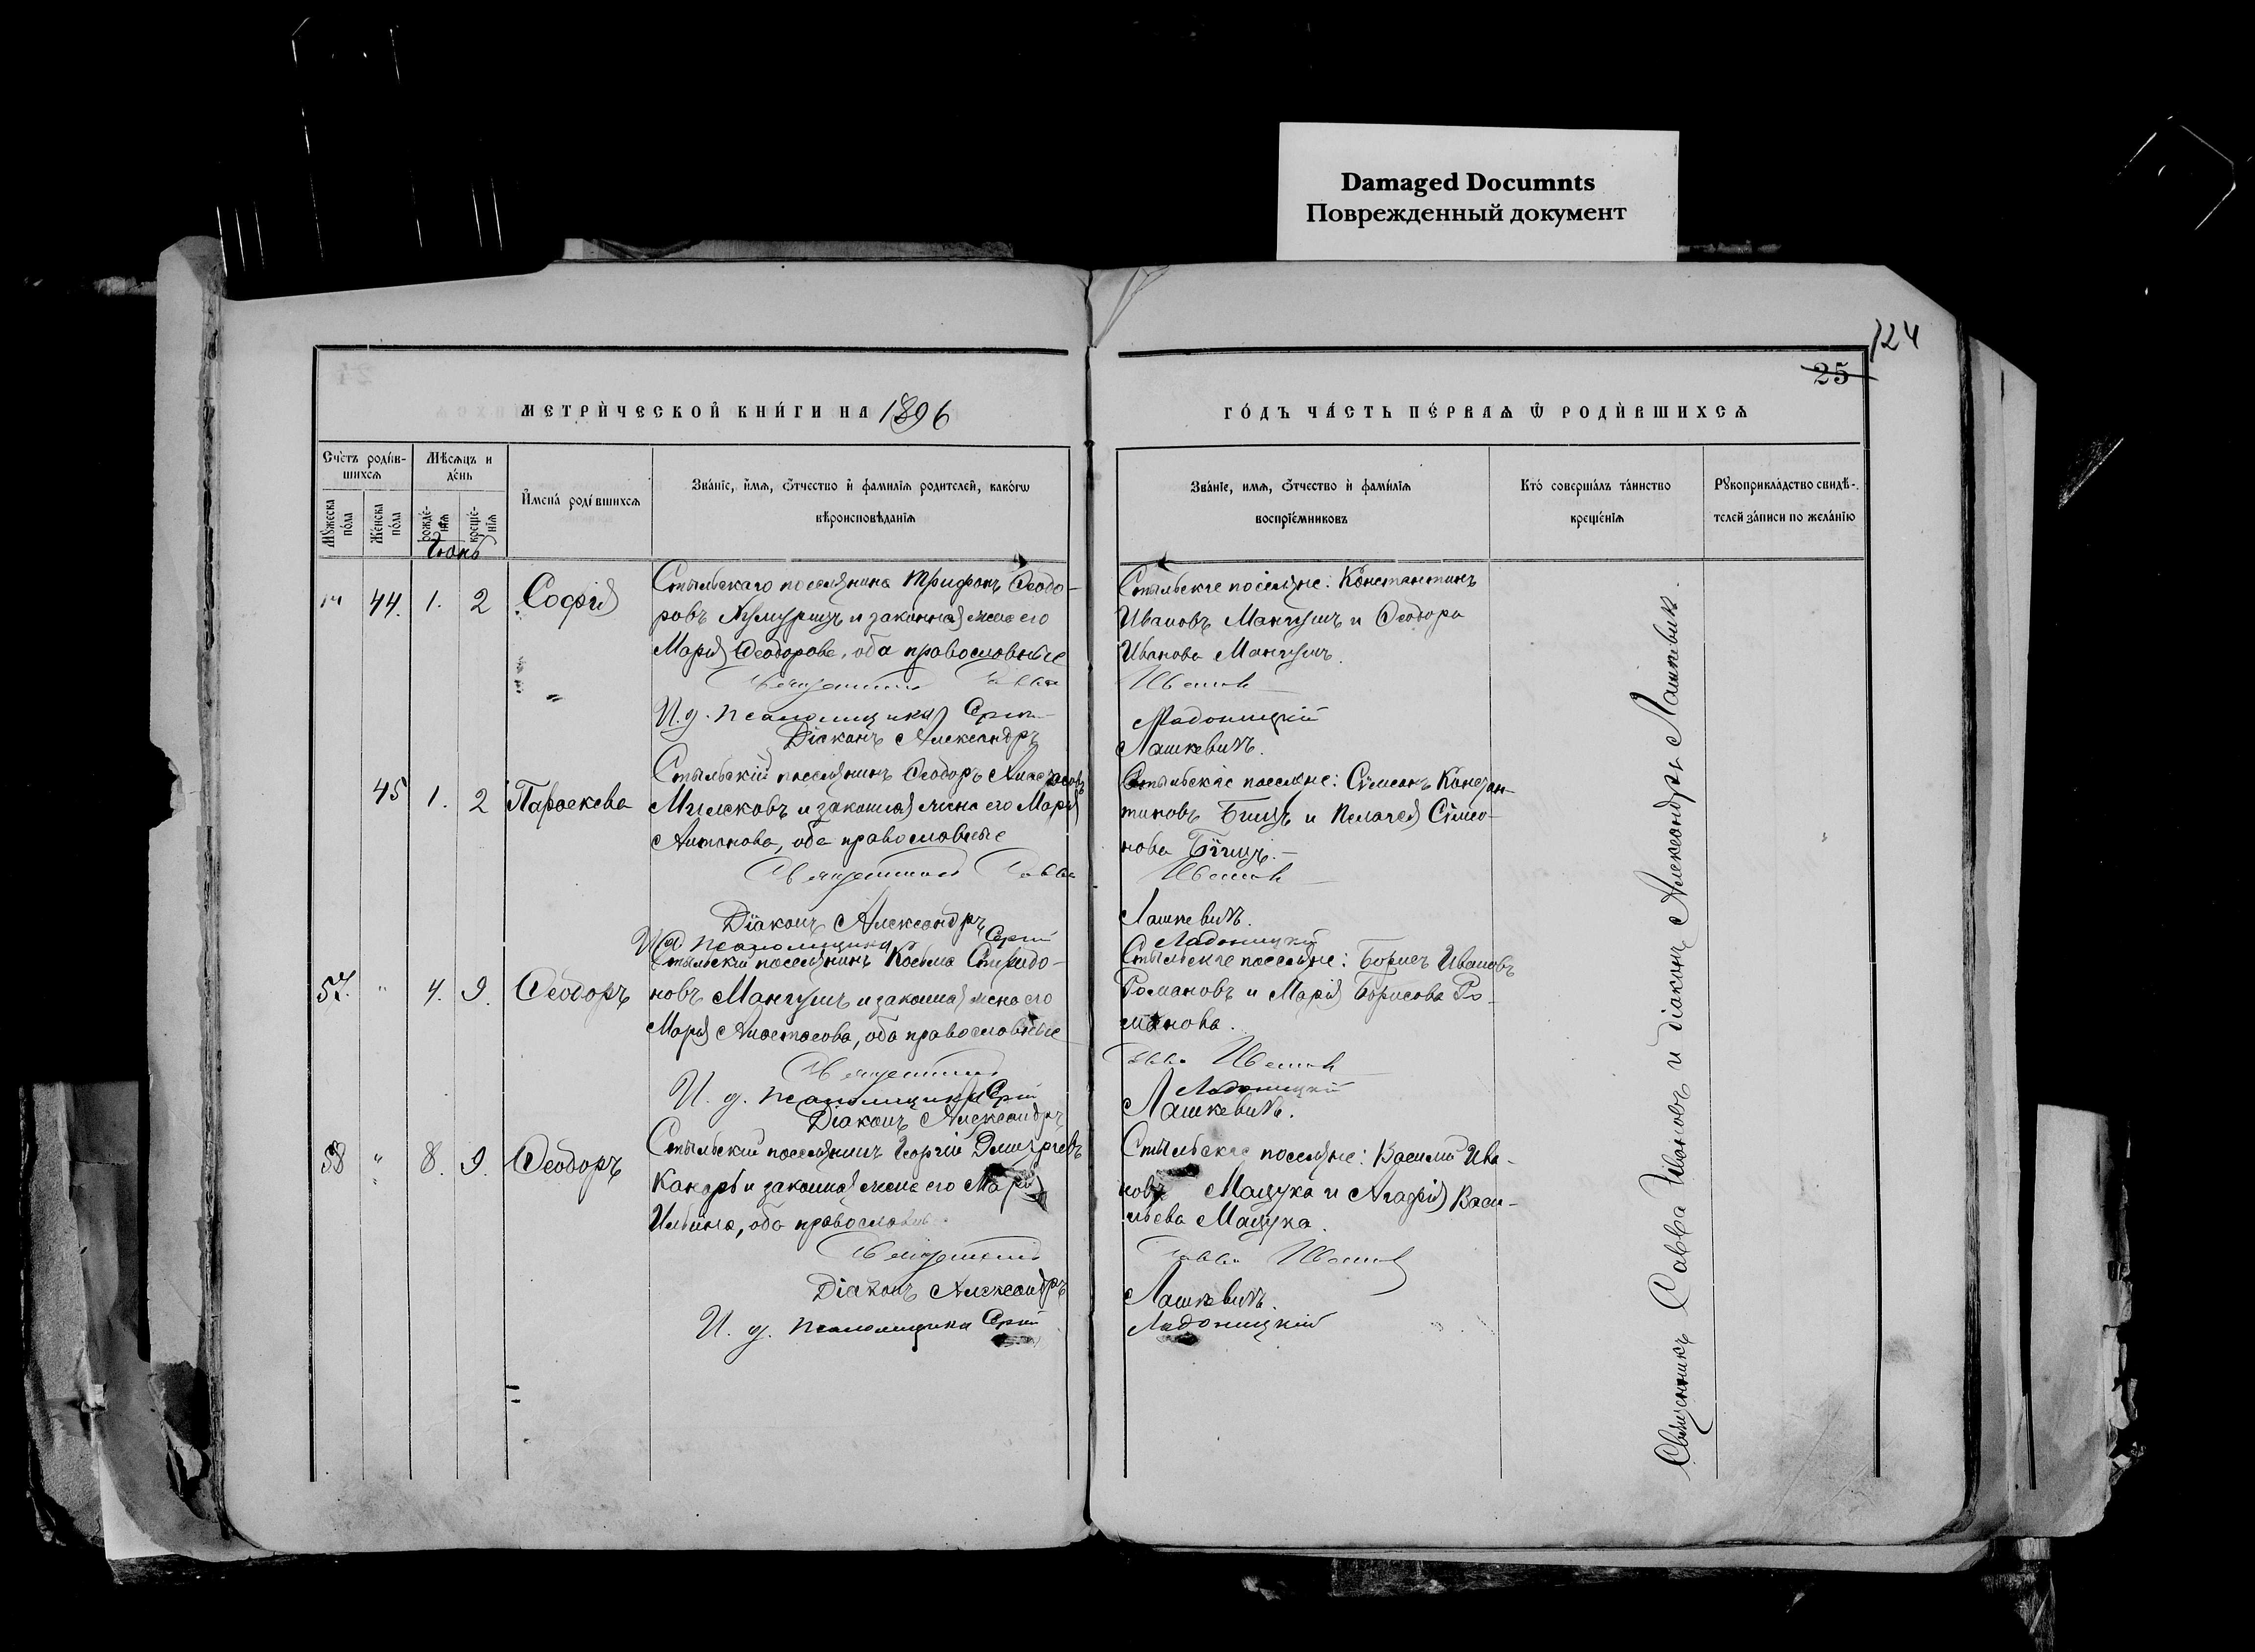 Damaged Documnts
Поврежденный документ
124
25
МЕТРИ́ЧЕСКОЙ КНИ́ГИ НА 1896
ГО́ДЪ ЧА́СТЬ ПЕ́РВАѦ Ѡ҆ РОДИ́ВШИХСѦ
Сче́тъ роди́в-
шихсѧ
Мꙋ́жеска
по́ла
Же́нска
по́ла
Мѣ́сѧцъ и
де́нь
рожде́-
нїѧ
креще́-
нїѧ
И҆мена́ роди́вшихсѧ
Зва́нїе, и҆́мѧ, ѻ҆́тчество и҆ фами́лїѧ роди́телей, како́гѡ
вѣроисповѣ́данїѧ
Зва́нїе, и́мѧ, ѻ҆́тчество и҆ фами́лїѧ
воспрїе́мниковъ
Кто́ соверша́лъ та́инство
креще́нїѧ
Рꙋкоприкла́дство свидѣ́-
телей за́писи по жела́нїю
Іюнь
44. 1. 2 Софія
Стыльскаго поселянина Трифонъ Ѳеодо-
ровъ и законная жена его
Марія Ѳеодорова, оба православные
Священникъ Савва
И. д. псаломщика Сергій
Діаконъ Александръ
Стыльскіе поселяне: Константинъ
Ивановъ Мангушъ и Ѳеодора
Иванова Мангушъ.
Ивановъ
Ладоницкій
Лашкевичъ.
45 1. 2 Параскева
Стыльскій поселянинъ Ѳеодоръ Анастасовъ
и законная жена его Марія
Антонова, оба православные
Священникъ Савва
Діаконъ Александръ
И д псаломщика Сергій
Стыльскіе поселяне: Сѵмеонъ Констан-
тиновъ и Пелагея Сѵмео-
нова
Ивановъ
Лашкевичъ.
Ладоницкій
57. " 4. 9. Ѳеодоръ
Стыльскій поселянинъ Косьма Спиридо-
новъ Мангушъ и законная жена его
Марія Анастасова, оба православные
Священникъ
И. д. псаломщика Сергій
Діаконъ Александръ
Стыльскіе поселяне: Борисъ Ивановъ
Романовъ и Марія Борисова Ро-
манова.
Савва Ивановъ
Ладоницкій
Лашкевичъ.
58 " 8. 9. Ѳеодоръ
Стыльскій поселянинъ Георгій Дмитріевъ
и законная жена его Марія
Ильина, оба православн.
Священникъ
Діаконъ Александръ
И. д. псаломщика Сергій
Стыльскіе поселяне: Василій Ива-
новъ Мацука и Агафія Васи-
льева Мацука.
Савва Ивановъ
Лашкевичъ.
Ладоницкій
Священникъ Савва Ивановъ и діаконъ Александръ Лашкевичъ.